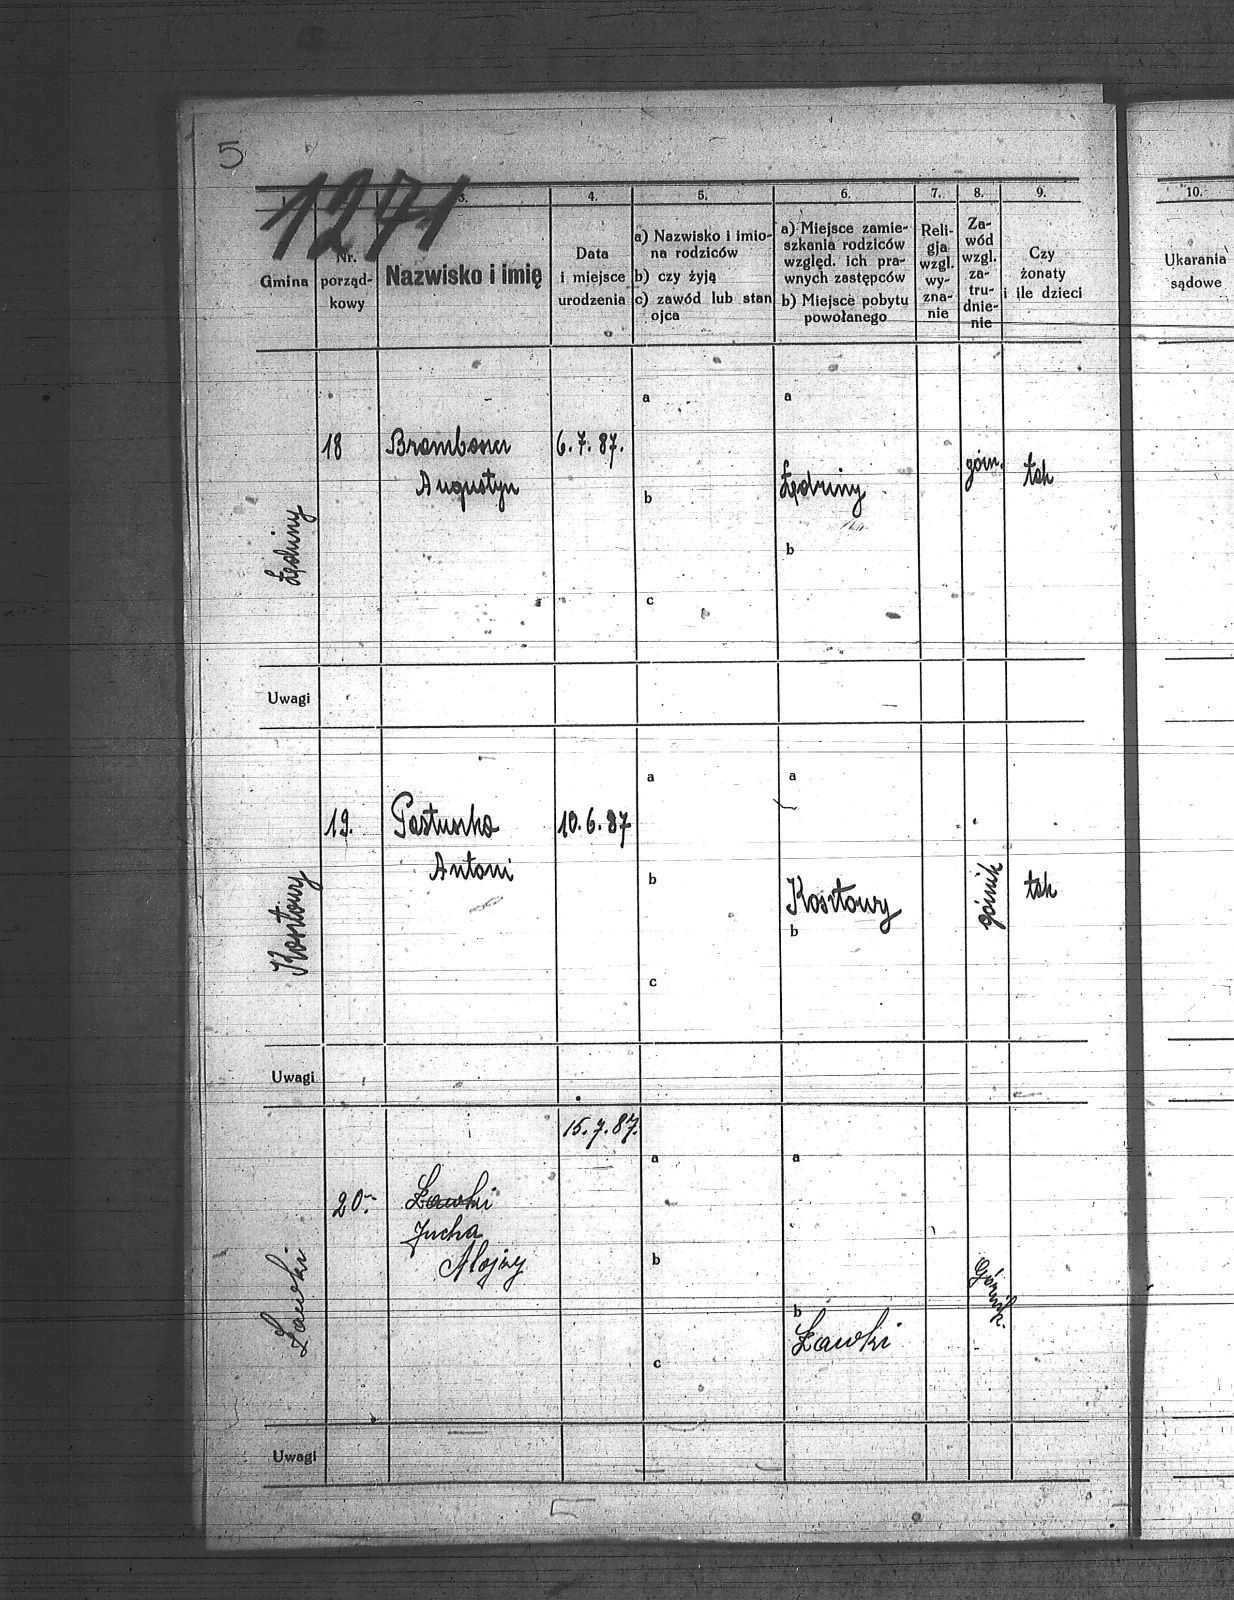 5
1271
1. 3. 4. 5. 6. 7. 8. 9. 10.
Gmina
Nr.
porząd-
kowy
Nazwisko i imię
Data
i miejsce
urodzenia
a) Nazwisko i imio-
na rodziców
b) czy żyją
c) zawód lub stan
ojca
a) Miejsce zamie-
szkania rodziców
wzgłęd. ich pra-
wnych zastępców
b) Miejsce pobytu
powołanego
Reli-
gja
wzgl.
wy-
zna-
nie
Za-
wód
wzgl.
za-
tru-
dnie-
nie
Czy
żonaty
i ile dzieci
Ukarania
sądowe
Lędziny
18
Brombosz
Augustyn
6.7.87.
a
b
c
a
Lędziny
b
górn.
tak
Uwagi
Kosztowy
19.
Pastuszka
Antoni
10.6.87
a
b
c
a
Kosztowy
b
górnik
tak
Uwagi
Ławki
20.
15.7.87.
Ławki
Jucha
Alojzy
a
b
c
a
b
Ławki
Górnik.
Uwagi
5